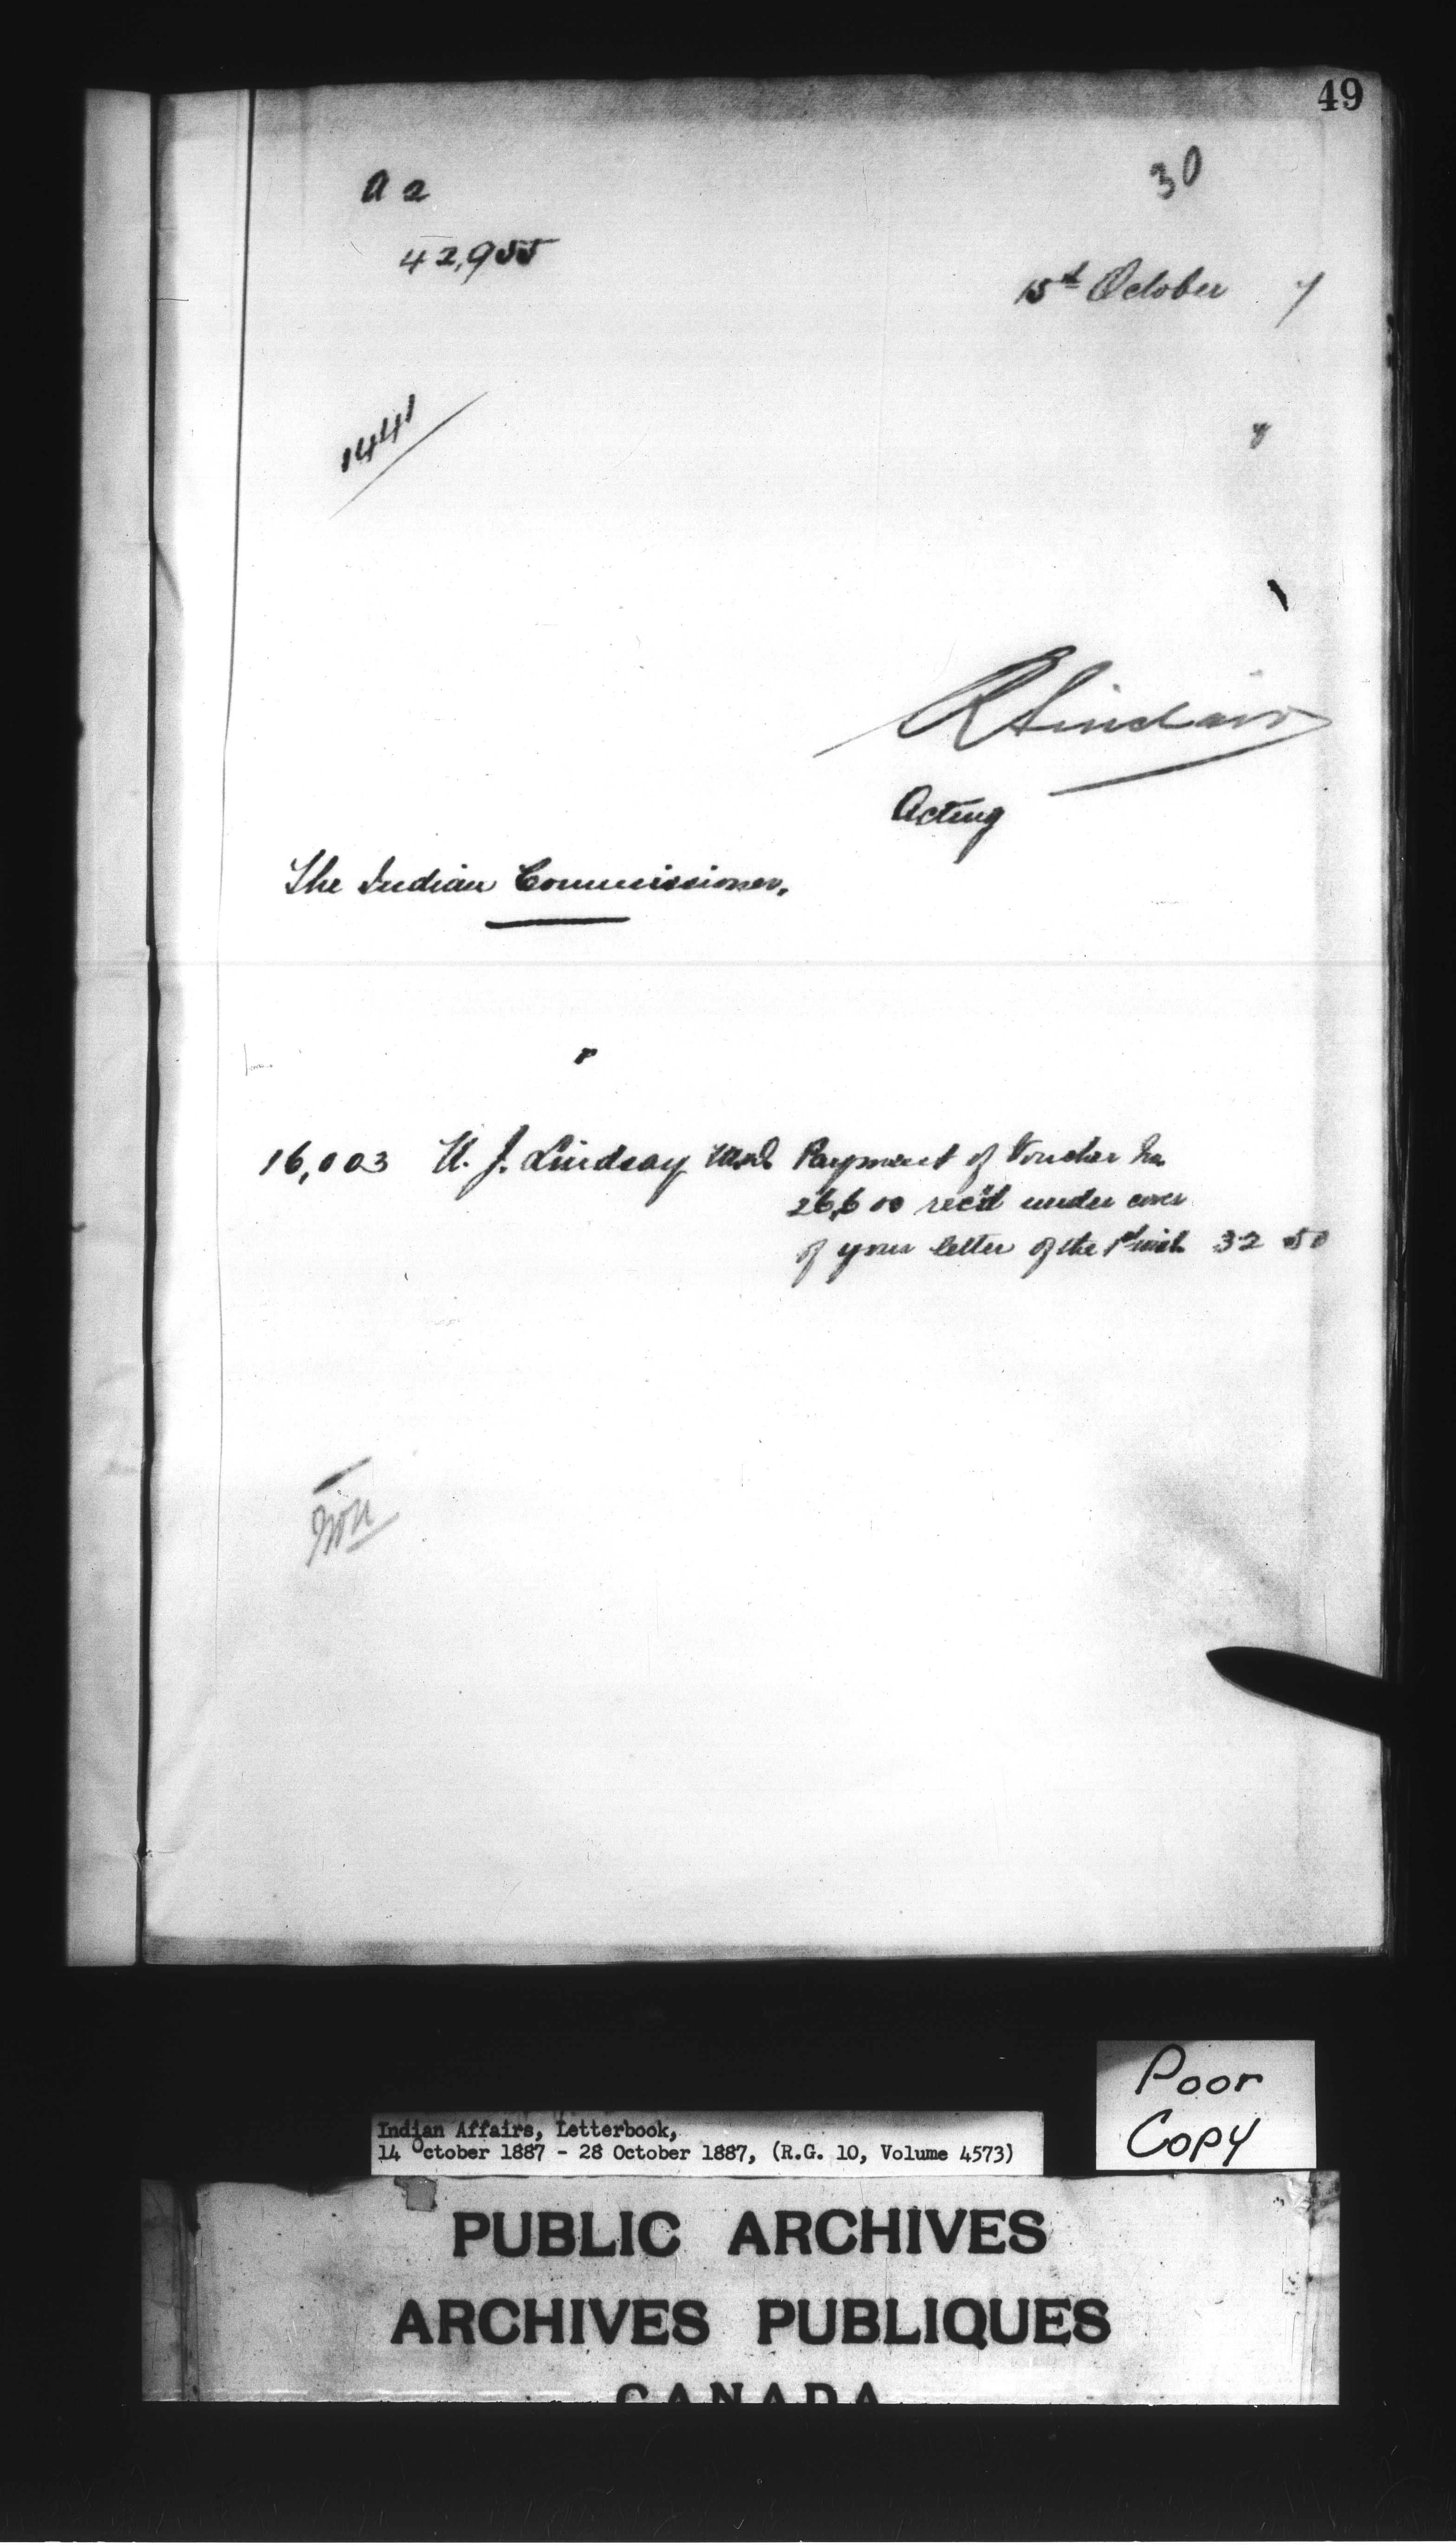 49
A 2
30
42,955
15th October 7
1441
y
R Sinclair
Acting
The Indian Commissioner.
16,003 J. Lindsay Payment of Voucher No
26,600 rec'd under cover
of your letter of the 1st inst 32 50
Poor
Copy
Indian Affairs, Letterbook,
14 October 1887 - 28 October 1887, (R.G. 10, Volume 4573)
PUBLIC ARCHIVES
ARCHIVES PUBLIQUES
CANADA